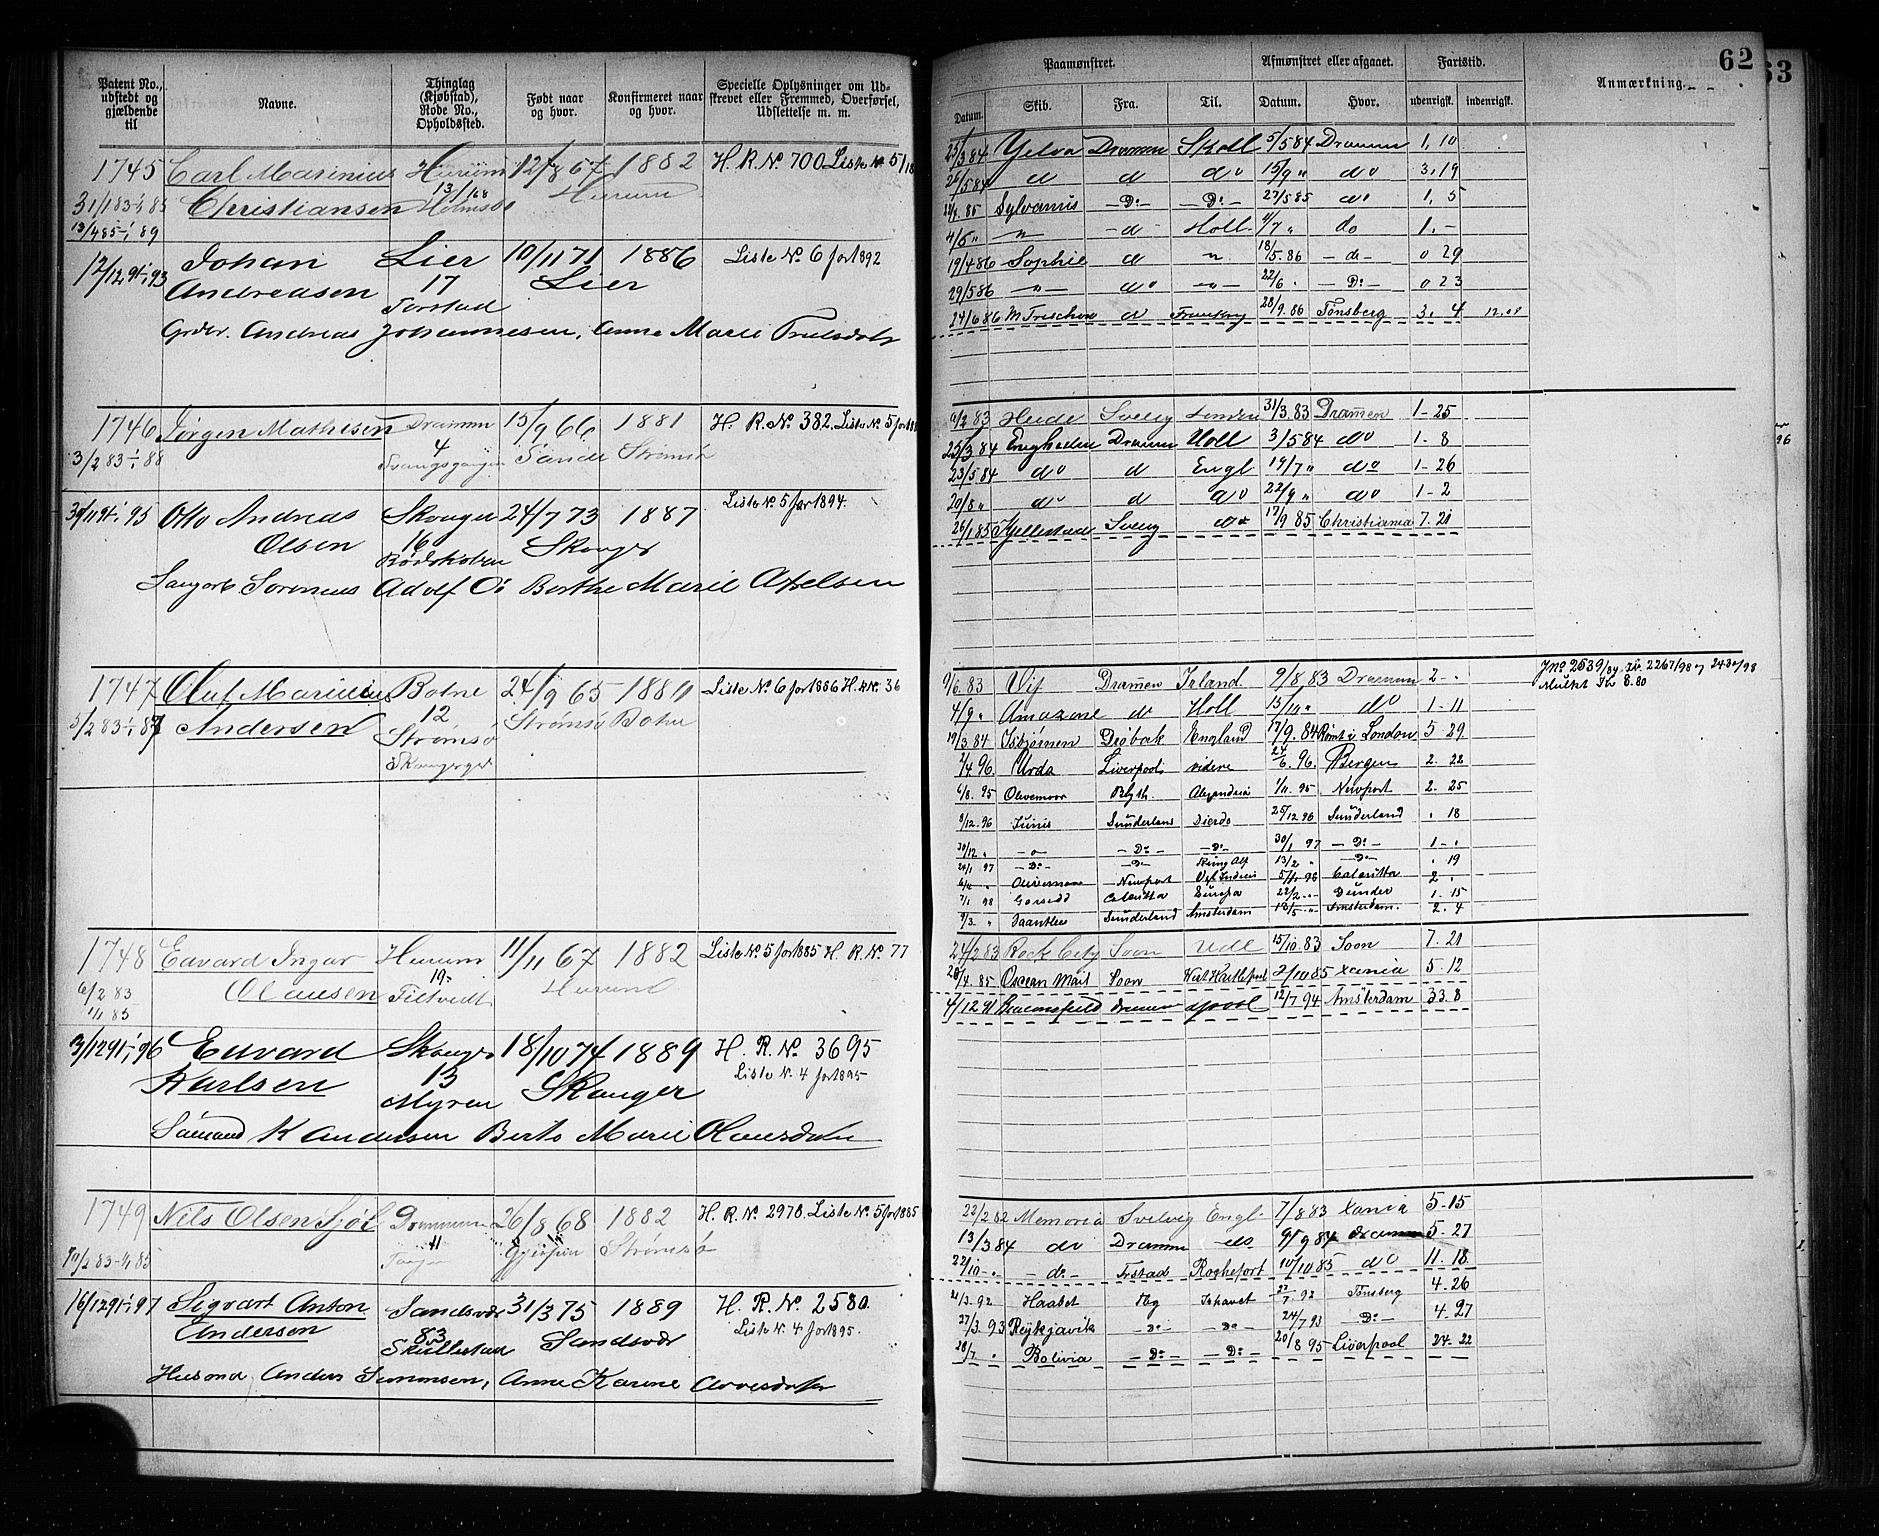 62
63
Patent No., udstedt og gjældende til
Navne.
Thinglag (Kjøbstad), Rode No., Opholdssted.
Født naar og hvor.
Konfirmeret naar og hvor.
Specielle Oplysninger om Udskrevet eller Fremmed, Overførsel, Udslettelse m. m.
Paamønstret.
Afmønstret eller afgaaet.
Fartstid.
Anmærkning.
Datum. Skib. Fra. Til. Datum. Hvor. udenrigsk. indenrigsk.
1745 Carl Marinius Hurum 12/8 67 1882 H. R. No 700 Liste No 5/18
31/1 83 1/1 85 Christiansen 13/168 Holmsbo Hurum
13/4 85 1/1 89
12/12 91 1/1 93 Johan Lier 10/11 71 1886 Liste No 6 for 1892
Andreasen 17 Lier
Torstad
Grdbr. Andreas Johannesen, Anne Marie Trulsdatr
25/3 84 Yelva Drammen Skotl 5/5 84 Drammen 1. 10
26/5 84 do do do 15/9 " do 3. 19
Sylvanus - Do - - Do - 27/5 85 do 1. 5
4/6 " - " - - d - Holl 11/7 " do 1. -
19/4 86 Sophie d " 18/5. 86 - do - 0 29
29/5 86 - " - do - " - 22/6 - Do - 0 23
24/6 86 M Treschow d Frankrg 28/9. 86 Tønsberg 3. 4
1746 Jørgen Mathisen Drammen 15/9 66 1881 H. R. No 382. Liste No 5 for 188
3/2 83 1/1 88 4 Sande Strømsø
Tvangsgangen
30/11 91 1/1 95 Otto Andreas Skouger 24/7 73 1887 Liste No 5 for 1894.
Olsen 16 Skouger
Rødskolen
Sørenius Adolf O. Berthe Marie Axelsen
6/2 83 Heide Svelvg London 31/3. 83 Drammen 1 - 25
25/3 84 Enigheden Drammen Holl 3/5 84 do 1 - 8
23/5 84 do d Engl 19/7 " do 1 - 26
20/8 " do d do 22/9 " do 1 - 2
26/1 85 Kjellestad Svelvg do 17/9 85 Christiania 7. 21
1747 Oluf Marinius Botne 24/9 65 1881 Liste No 6 for 1886 H. R No. 36
5/2 83 1/1 87 Andersen 12 Strømsø Botne
Strømsø
Skougergd
9/6. 83 Vif Drammen Irland 9/8 83 Drammen 2 - .
4/9 " Amazone do Holl 15/10 " do 1 - 11
19/3 84 Isbjørnen Drøbak England 17/9. 84 Rømt i London 5 29
2/4 96 Urda Liverpool videre 24/6. 96. Bergen 2. 22
6/8. 95 Olivemoor Blyth. Alexandria 1/11. 95 Newport 2. 25
8/12. 96 Junis Sunderland Dieppe 25/12 96 Sunderland . 18
30/12 " - o - - Do - - Do - 30/1 97 - Do - 1 - .
97 - Do - - Do - 13/2 " - Do - . 19
Olivemoor Newport Vest Indien 5/11. 96 Calcutta 2 .
7/1 98 Gorsedd Calcutta Europa 22/2 - . Dundee 1. 15
9/3. " Sunderland Amsterdam 13/5 - " Amsterdam. 2. 4
Jno 2539/84 2267/98 2430/98
Mulkt Kr 8.80
1748 Edvard Ingvar Hurum 11/11 67 1882 Liste No 5 for 1885 H. R. No. 77
6/2 83 Olausen 19. Hurum
1/1 85 Tiltvedt
13/12 91 1/1 96 Edvard Skouger 18/10 74 1889 H. R. No 3695
Karlsen 13 Skouger Liste No. 4 for 1895
Myren
Sømand K Andersen Berte Marie Olausdatr
24/2 83 Rock City Soon Udl 15/10. 83 Soon 7. 21
28/4. 85 Oscean Mail Soon Vest Hartlepool 2/10 85 Xania 5. 12
4/12 91 Beaconsfield Drammen Lpool 12/7 94 Amsterdam 33 8
1749 Nils Olsen Sjøl Drammen 26/8 68 1882 H. R. No. 2978. Liste No. 5 for 1885
10/2 83 - 1/1 85 11 Gjerpen Strømsø
Tangen
16/12 91 1/1 97 Sigvart Anton Sandsvær 31/3 75 1889 H. R. No 2580
Andersen 83 Sandsvær Liste No. 4 for 1895.
Skullestad
Husmd Anders Simonsen, Anne Karine
22/2 82 Memoria Svelvig Engl. 7/8 83 Xania 5. 15
13/3 84 do Drammen do 9/9 84 Drammen 5. 27
22/10 - . - do - Frstad Rochefort 10/10 85 do 11. 18
21/3. 92 Haabet Tbg Ishavet 27/7. 92 Tønsberg 4. 26
27/3. 93 Reykjavik - Do - - Do - 24/7 93 - Do - 4. 27
28/7 . Bolivia - Do - - Do - 20/8 95 Liverpool 24. 22